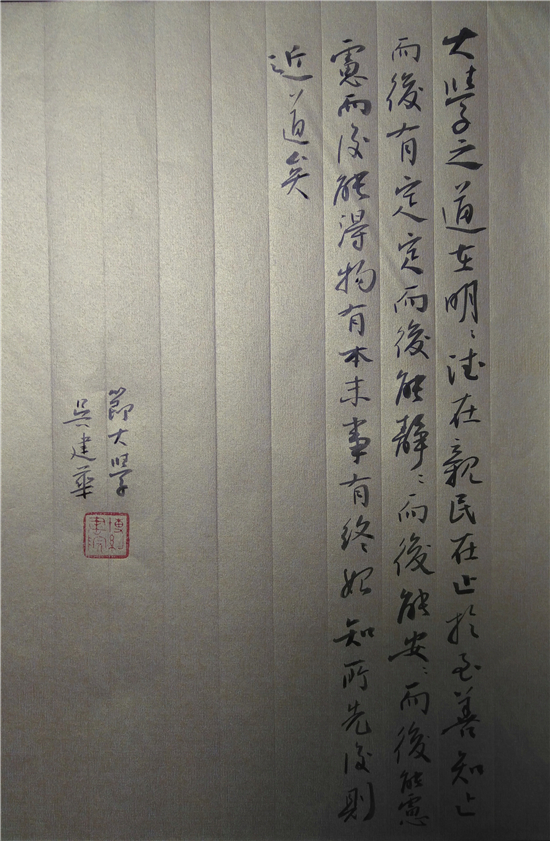 大學之道在明〻德在親民在止於至善知止
而後有定定而後能静〻而後能安〻而後能慮
慮而後能得物有本末事有終始知所先後則
近道矣
節大學
吳建華